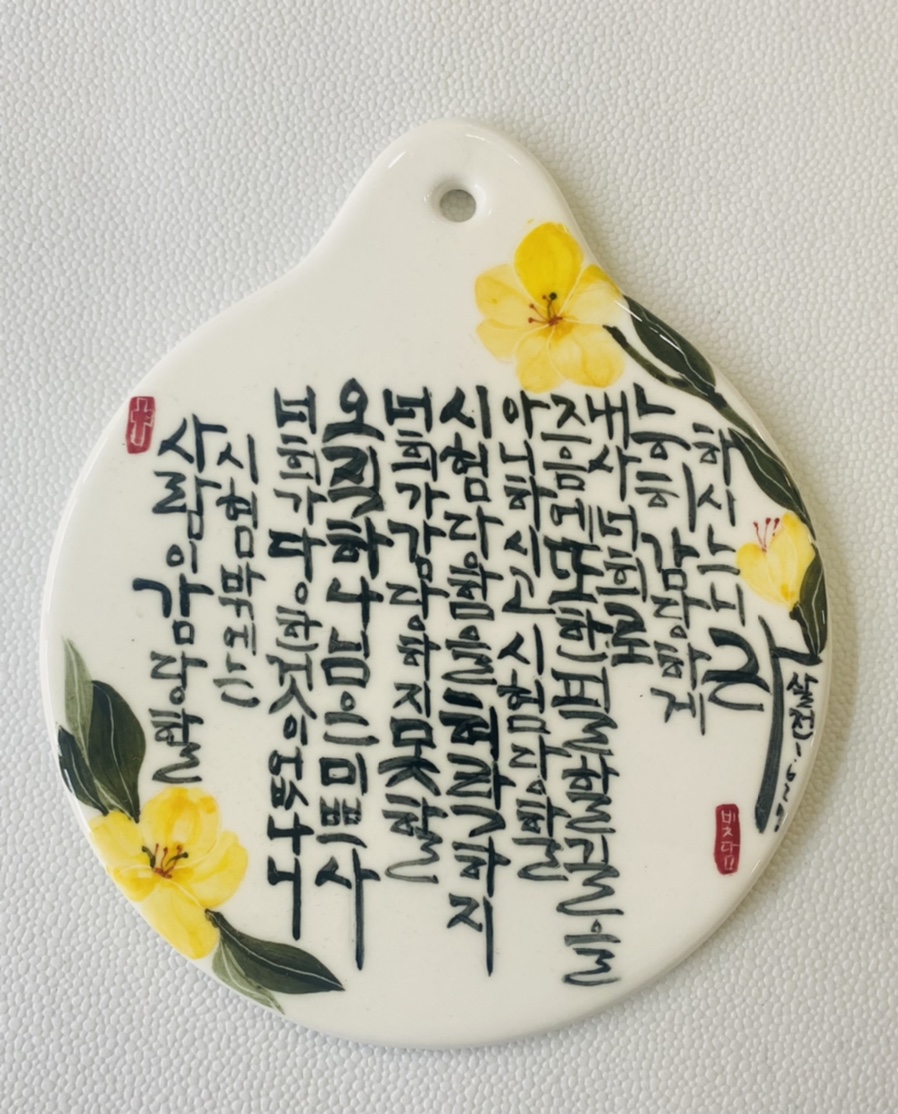 사람이 감당할
시험 밖에는
너희가 당한 것이 없나니
오직 하나님은 미쁘사
너희가 감당하지 못할
시험 당함을 허락하지
아니하시고 시험 당할
즈음에 또한 피할 길을
내사 너희로
감당하게
하시느니라